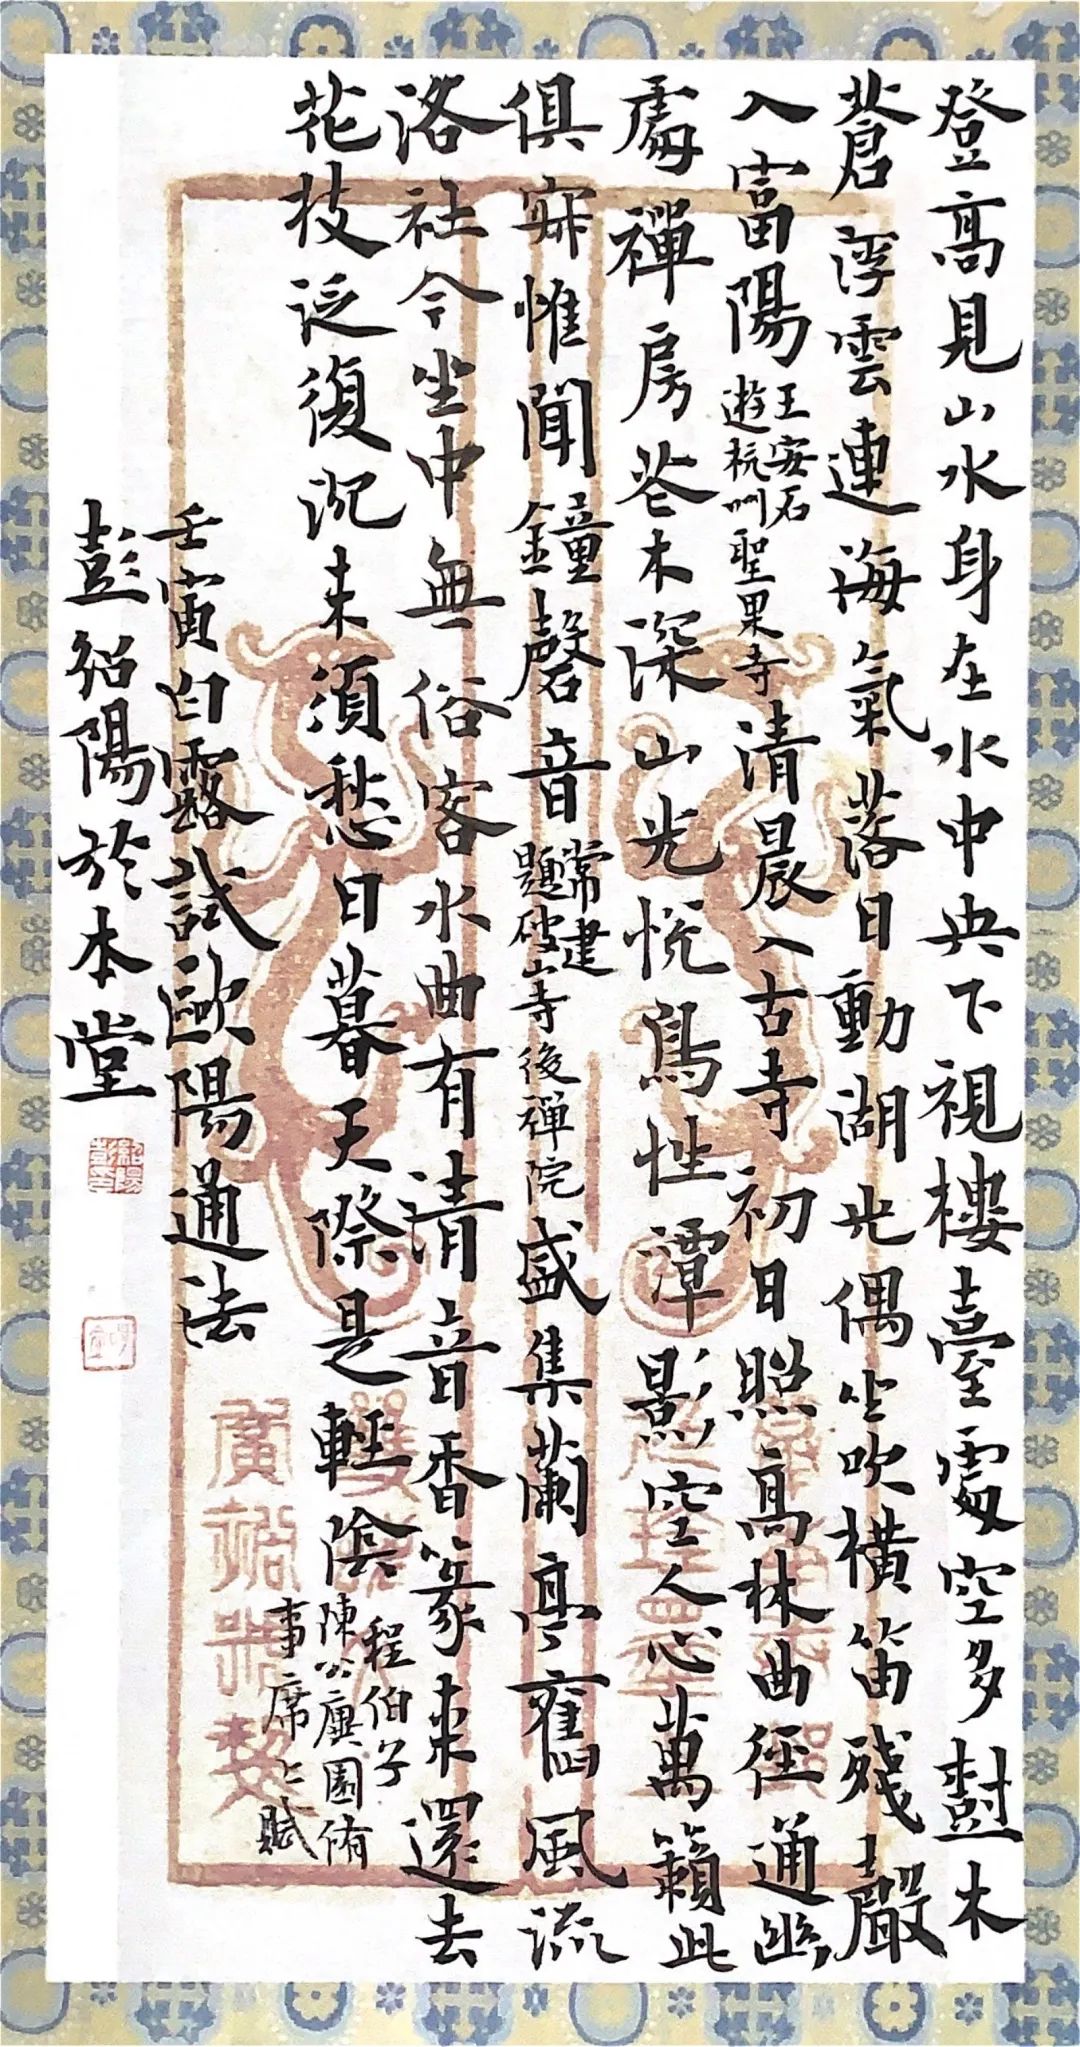 登高見山水身在水中央下視樓臺處空多樹木
蒼浮雲連海氣落日動湖光偶坐吹橫笛殘聲
入富陽王安石遊杭州聖果寺清晨入古寺初日照高林曲徑通幽
處禪房花木深山光悅鳥性潭影空人心萬籟此
俱寂惟聞鐘磬音常建題破山寺後禪院盛集蘭亭舊風流
洛社今坐中無俗客水曲有清音香篆來還去
花枝泛復沉未須愁日暮天際是輕陰程伯子陳公廙園脩事席上賦
壬寅白露試歐陽通法
彭紹陽於本堂